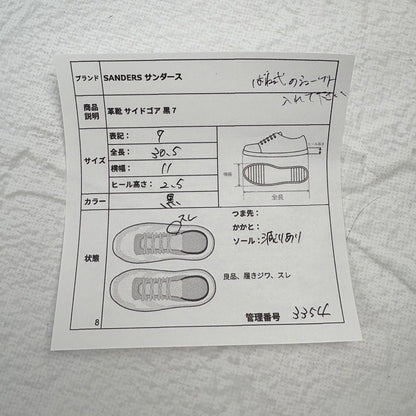 ブランド SANDERS サンダース
ばね式のシューキーパー
入れて下さい
商品説明 革靴 サイドゴア 黒 7
サイズ
表記： 7
全長： 30.5
横幅： 11
ヒール高さ： 2.5
ヒール高さ
横幅
全長
カラー 黒
状態
スレ
つま先：
かかと：
ソール：減りあり
良品、履きジワ、スレ
8
管理番号 3354